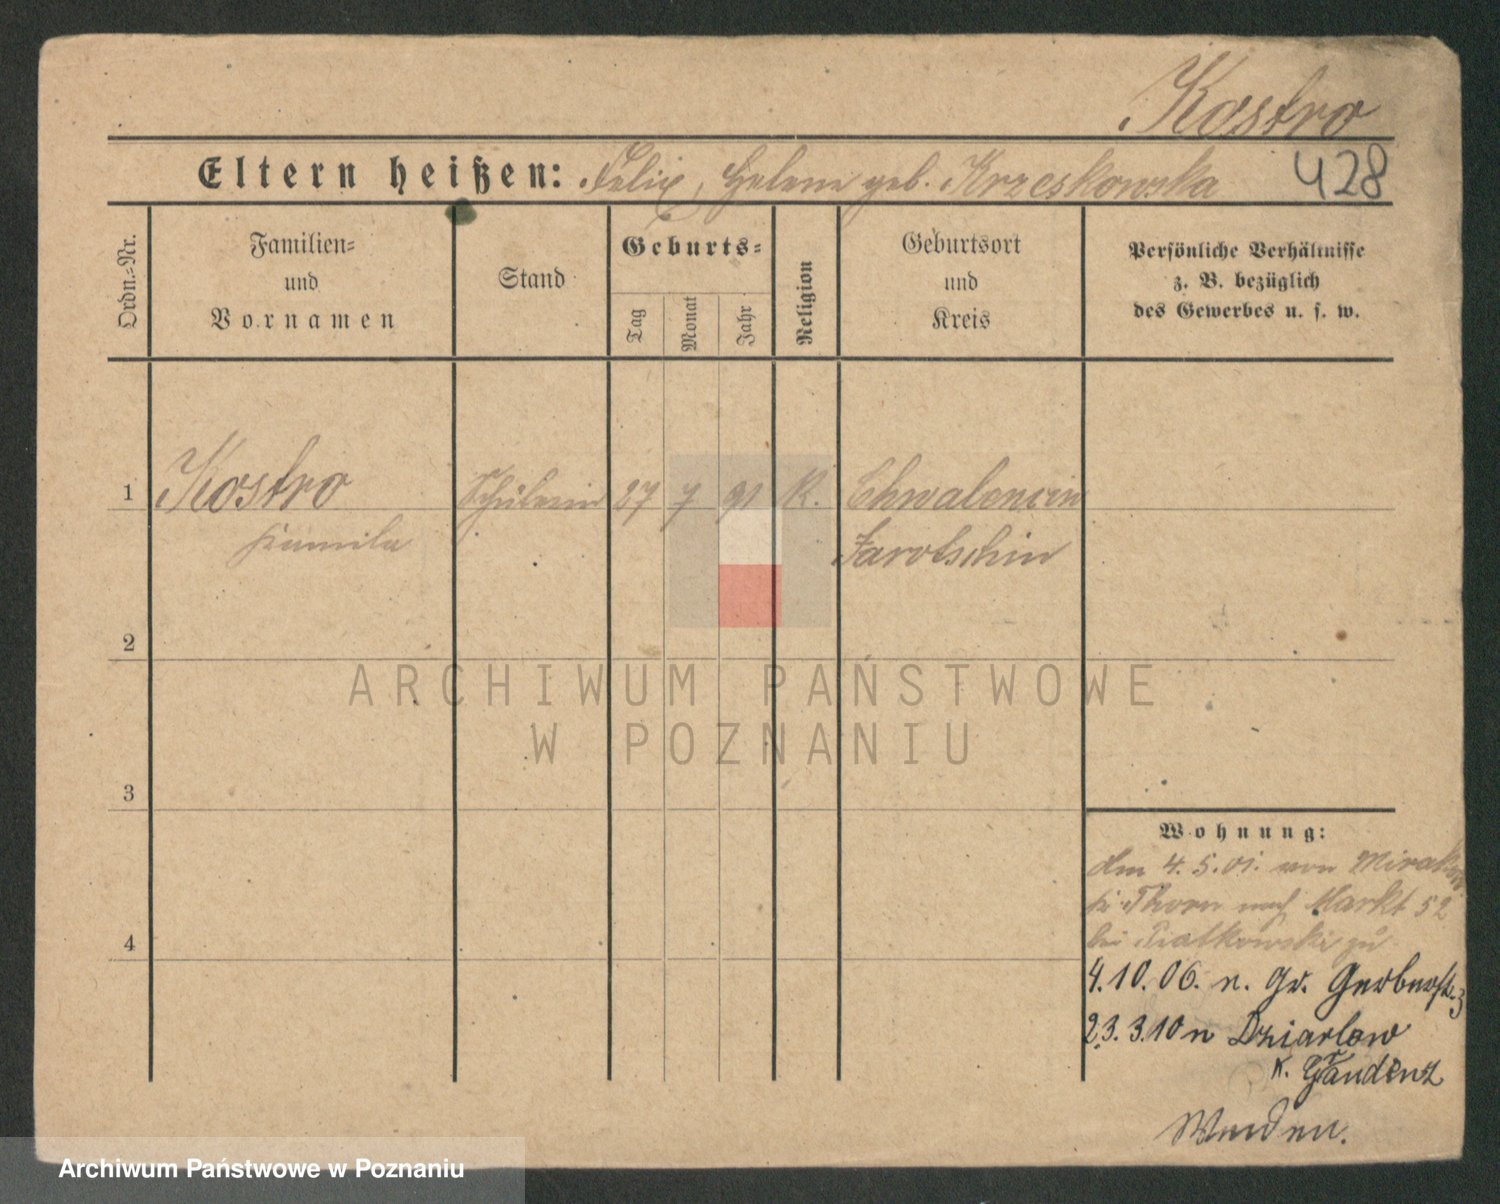 Kostro
Eltern heißen: Felix, Helene geb. Krzeskowska 428
Ordn.-Nr.
Familien-
und
Vornamen
Stand
Geburts-
Tag
Monat
Jahr
Religion
Geburtsort
und
Kreis
Persönliche Verhältnisse
z. B. bezüglich
des Gewerbes u. s. w.
1 Kostro Schülerin 27 7 91 K. Chwalencin
Jarotschin
2
ARCHIWUM PAŃSTWOWE
W POZNANIU
3
Wohnung:
4. 5. 01. von
Thorn nach Markt 52
4
bei Piatkowski zu
4.10.06. n. Gr. Gerberstr. 3
23. 3. 10 n
K. Graudenz
Archiwum Państwowe w Poznaniu